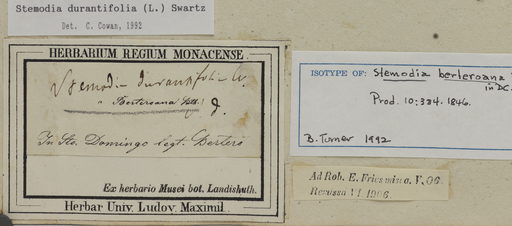 Stemodia durantifolia (L.) Swartz
Det. C. Cowan, 1992
HERBARIUM REGIUM MONACENSE.
Stemodia durantifolia
" Berteroana
In Sto. Domingo legt. Bertero
Ex herbario Musei bot. Landishuth.
Herbar Univ. Ludov. Maximil.
ISOTYPE OF: Stemodia berteroana
in DC.
Prod. 10:384. 1846.
B. Turner 1992
Ad Rob. E. Fries missa. V. 06.
Reversa VI 1906.